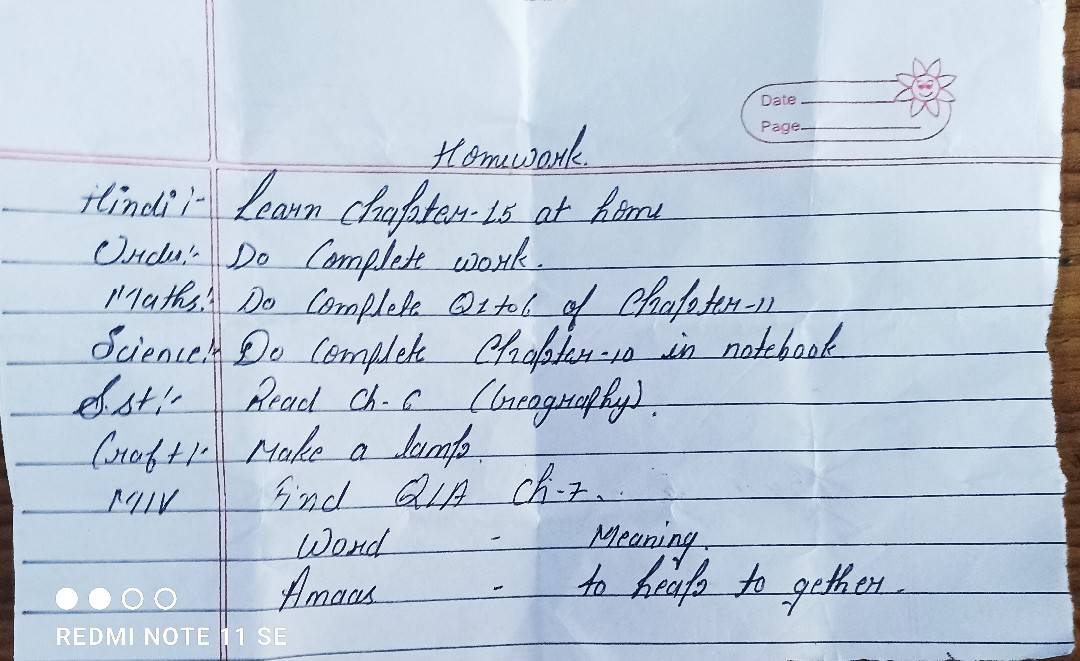 Date
Page
Homework.
Hindi :- Learn Chapter-15 at home
Urdu :- Do Complete work.
Maths :- Do Complete Q1 to 6 of Chapter-11
Science :- Do Complete Chapter-10 in notebook
S.st :- Read Ch-6 (Geography).
Craft :- Make a lamp.
MIV Find Q/A Ch-7.
Word - Meaning.
Amaas - to heap to gether.
REDMI NOTE 11 SE